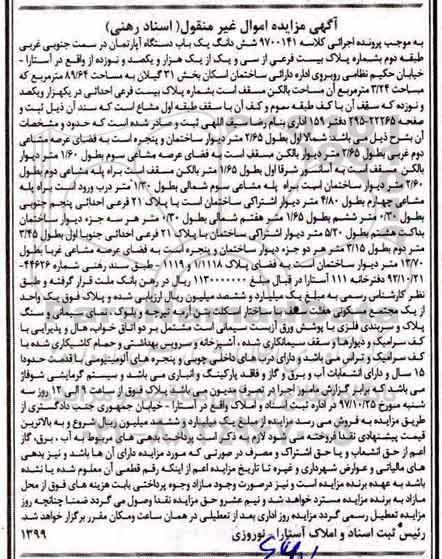 آگهی مزایده اموال غیر منقول( اسناد رهنی)
به موجب پرونده اجرائی کلاسه ۹۷۰۰۱۴۱ شش دانگ یک باب دستگاه آپارتمان در سمت جنوبی غربی
طبقه دوم بشماره پلاک بیست فرعی از سی و یک از یک هزار و یکصد و نوزده از واقع در آستارا -
خیابان حکیم نظامی روبروی اداره دارائی ساختمان اسکان بخش ۳۱ گیلان به مساحت ۸۹/۶۴ مترمربع که
مساحت ۳/۲۴ مترمربع آن مساحت بالکن مسقف است بشماره پلاک بیست فرعی احداثی در یکهزار ویکصد
و نوزده که سقف آن با کف طبقه سوم و کف آن با سقف طبقه اول مشاع است که سند آن ذیل ثبت و
صفحه ۲۲۲۶۵-۲۹۵ دفتر ۱۵۹ اداری بنام رضا سیف اللهی ثبت و صادر شده است که حدود و مشخصات
آن بشرح ذیل می باشد: شمالا اول بطول ۲/۶۵ متر دیوار ساختمان و پنجره است به فضای عرصه مشاعی
دوم غربی بطول ۲/۶۵ متر دیوار بالکن مسقف است به فضای عرصه مشاعی سوم بطول ۱/۶۰ متر دیوار
بالکن مسقف است به آسانسور شرقا اول بطول ۱/۶۵ متر بالکن مسقف است به راه پله مشاعی دوم بطول
۲/۶۰ متر دیوار ساختمان است براه پله مشاعی سوم شمالی بطول ۱/۳۰ متر درب ورود است براه پله
مشاعی چهارم بطول ۴/۸۰ متر دیوار اشتراکی ساختمان است با پلاک ۲۱ فرعی احداثی پنجم جنوبی
بطول ۰/۳۰ متر ششم بطول ۱/۶۵ متر هفتم شمالی بطول ۰/۳۰ متر هر سه جزء دیوار ساختمان
بداکت هشتم بطول ۵/۲۰ متر دیوار اشتراکی است با پلاک ۲۱ فرعی احداثی جنوبا اول بطول ۳/۴۵
متر دوم بطول ۳/۱۵ متر هر دو جزء دیوار ساختمان و پنجره است به فضای عرصه مشاعی غربا بطول
۱۳/۷۰ متر دیوار ساختمان است به فضای پلاک ۱/۱۱۱۸ و ۱۱۱۹ - طبق سند رهنی شماره ۴۴۶۲۶-
۹۲/۱۰/۲۱ دفترخانه ۱۱۱ آستارا در قبال مبلغ ۱۱۳۰۰۰۰۰۰۰ ریال در رهن بانک ملت قرار گرفته و طبق
نظر کارشناس رسمی به مبلغ یک میلیارد و ششصد میلیون ریال ارزیابی شده و پلاک فوق یک واحد
از یک مجتمع مسکونی هفت سقف با ساختار اسکلت بتن آرمه تیرچه و بلوک ، نمای سیمانی و سنگ
پلاک و سربندی فلزی با پوشش ورق آزبست سیمانی است مشتمل بر دو اتاق خواب، هال و پذیرایی با
کف سرامیک و دیوارها و سقف سیمانکاری شده ، آشپزخانه و سرویس بهداشتی و حمام کاشیکاری شده با
کف سرامیک و تراس می باشد و دارای درب های داخلی چوبی و پنجره های آلومینیومی با قدمت حدودا
۱۵ سال و دارای انشعابات آب و برق و گاز و فاقد پارکینگ و انباری می باشد و سیستم گرمایشی شوفاژ
می باشد که برابر گزارش مامور اجرا در تصرف مدیون می باشد پلاک فوق از ساعت ۹ الی ۱۲ روز سه
شنبه مورخ ۹۷/۱۰/۲۵ در اداره ثبت اسناد و املاک واقع در آستارا - خیابان جمهوری جنب دادگستری از
طریق مزایده به فروش می رسد مزایده از مبلغ یک میلیارد و ششصد میلیون ریال شروع و به بالاترین
قیمت پیشنهادی نقدا فروخته می شود لازم به ذکر است پرداخت بدهی های مربوط به آب ، برق، گاز
اعم از حق انشعاب و یا حق اشتراک و مصرف در صورتی که مورد مزایده دارای آن ها باشد و نیز بدهی
های مالیاتی و عوارض شهرداری و غیره تا تاریخ مزایده اعم از اینکه رقم قطعی آن معلوم شده یا نشده
باشد به عهده برنده مزایده است و نیز درصورت وجود مازاد وجوه پرداختی بابت هزینه های فوق از محل
مازاد به برنده مزایده مسترد خواهد شد و نیم عشر و حق مزایده نقدا وصول می گردد ضمنا چنانچه روز
مزایده تعطیل رسمی گردد مزایده روز اداری بعد از تعطیلی در همان ساعت ومکان مقرر برگزار خواهد شد.
رئیس ثبت اسناد و املاک آستارا - نوروزی ۱۳۹۹